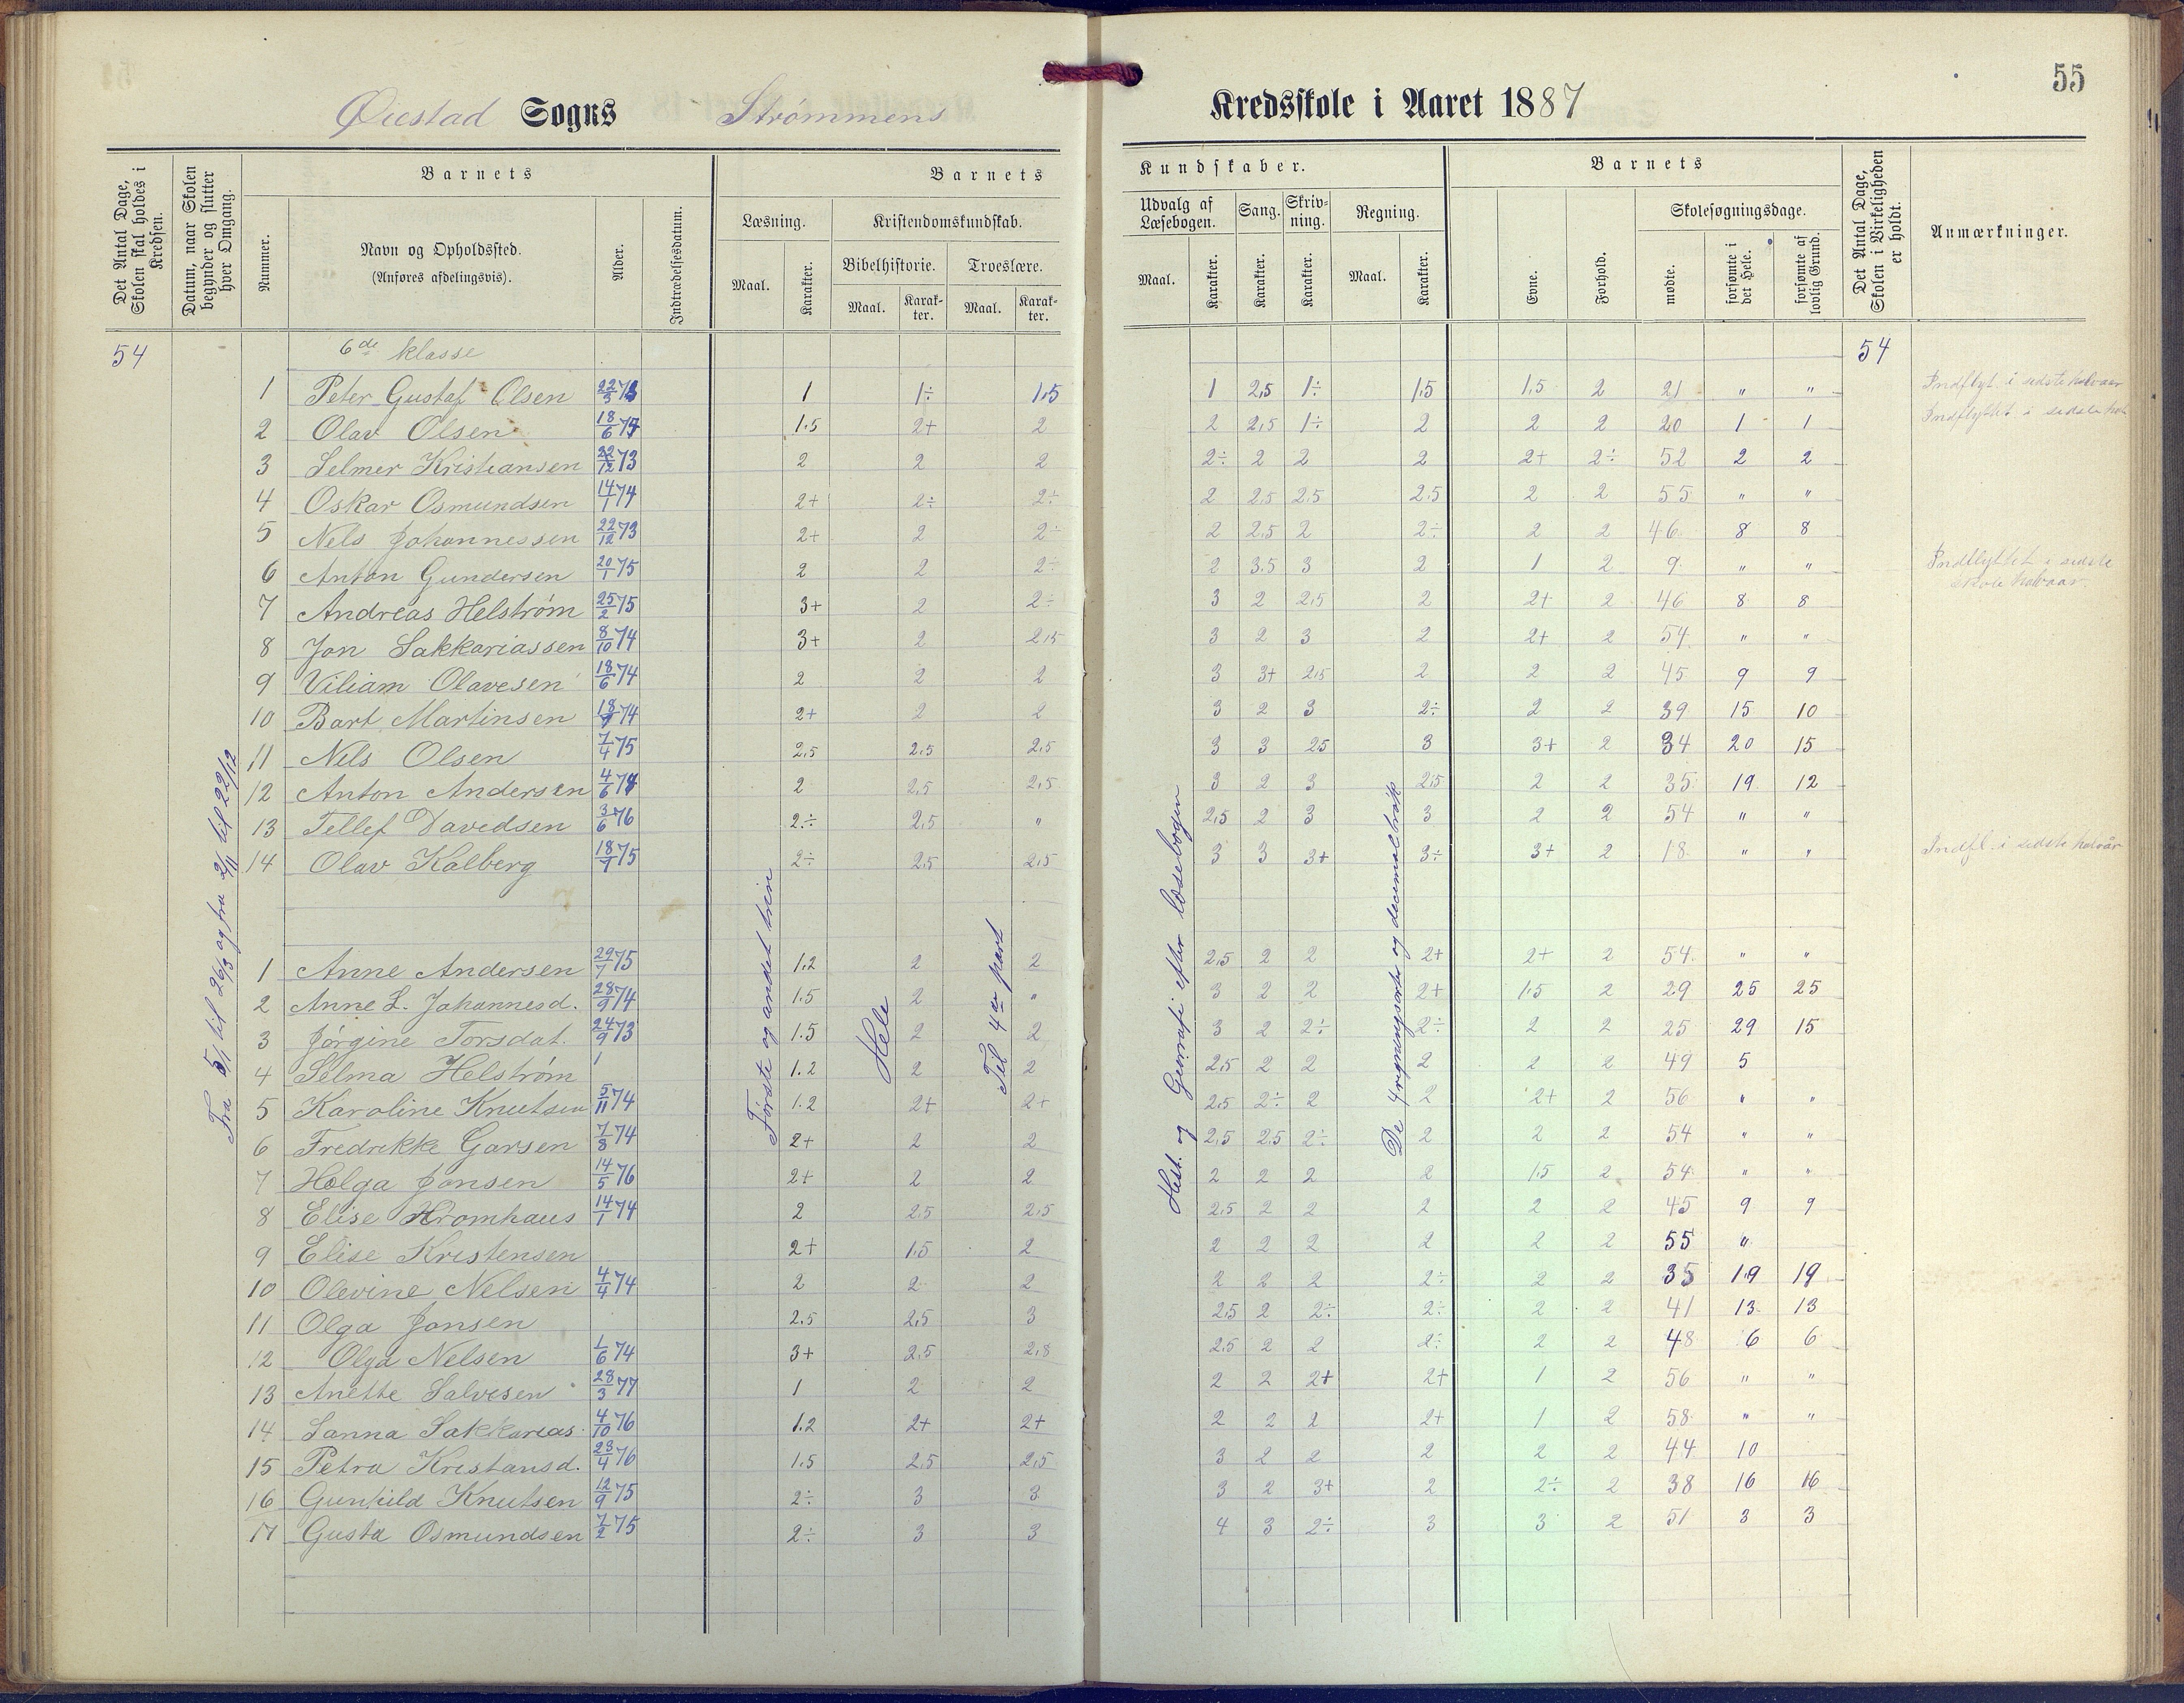 55
Øiestad Sogns Strømmens Kredsskole i Aaret 1887
Det Antal Dage, Skolen skal holdes i Kredsen.
Datum, naar Skolen begynder og slutter hver Omgang.
Barnets
Nummer.
Navn og Opholdssted.
(Anføres afdelingsvis).
Alder.
Indtrædelsesdatum.
Barnets Kundskaber.
Læsning.
Maal. Karakter.
Kristendomskundskab.
Bibelhistorie. Troeslære.
Maal. Karakter. Maal. Karakter.
Udvalg af Læsebogen. Sang. Skrivning. Regning.
Maal. Karakter. Karakter. Karakter. Maal. Karakter.
Barnets
Evne. Forhold.
Skolesøgningsdage.
mødte. forsømte i det Hele. forsømte af lovlig Grund.
Det Antal Dage, Skolen i Virkeligheden er holdt.
Anmærkninger.
54 6de klasse 54
1 Peter Gustaf Olsen 22/3 1 1÷ 1,5 1 2,5 1÷ 1,5 1,5 2 21 " " Indflyt. i sidste halvaar
2 Olav Olsen 18/6 1.5 2+ 2 2 2,5 1÷ 2 2 2 20 1 1 Indflyttet i sidste
3 Selmer Kristiansen 22/12 73 2 2 2 2÷ 2 2 2 2+ 2÷ 52 2 2
4 Oskar Osmundsen 14/1 74 2+ 2÷ 2÷ 2 2.5 2.5 2.5 2 2 55 " "
5 Nels Johannessen 22/12 73 2+ 2 2÷ 2 2,5 2 2÷ 2 2 46 8 8
6 Anton Gundersen 20/1 75 2 2 2÷ 2 3.5 3 2 1 2 9 " " Indflyttet i sidste skole halvaar.
7 Andreas Helstrøm 25/2 75 3+ 2 2÷ 3 2 2,5 2 2+ 2 46 8 8
8 Jon Sakkariassen 8/10 74 3+ 2 2,5 3 2 3 2 2+ 2 54 " "
9 Viliam Olavesen 18/6 74 2 2 2 3 3+ 2,5 2 2 2 45 9 9
10 Bart Martinsen 18/9 74 2+ 2 2 3 2 3 2÷ 2 2 39 15 10
11 Nels Olsen 7/4 75 2,5 2.5 2,5 3 3 25 3 3+ 2 34 20 15
12 Anton Andersen 4/6 74 2 2,5 2,5 3 2 3 2,5 2 2 35 19 12
13 Tellef Davedsen 3/6 76 2÷ 2,5 " 2,5 2 3 3 2 2 54 " "
14 Olav Kalberg 18/1 75 2÷ 2,5 2,5 3 3 3+ 3÷ 3+ 2 18 " " Indfl. i sidste halvår
1 Anne Andersen 29/7 75 1.2 2 2 2,5 2 2 2+ 2+ 2 54 " "
2 Anne L. Johannesd. 28/9 74 1.5 2 " 3 2 2 2+ 1,5 2 29 25 25
3 Jørgine Torsdat. 24/9 73 1.5 2 2 3 2 2÷ 2÷ 2 2 25 29 15
4 Selma Helstrøm 1 1.2 2 2 2,5 2 2 2 2 2 49 5
5 Karoline Knutsen 5/11 74 1.2 2+ 2+ 2,5 2÷ 2 2 2+ 2 56 " "
6 Fredrikke Garsen 7/8 74 2+ 2 2 2,5 2,5 2÷ 2 2 2 54 " "
7 Holga Jonsen 14/5 76 2+ 2 2 2 2 2 2 1,5 2 54 " "
8 Elise Kromhaus 14/1 74 2 2,5 2,5 2,5 2 2 2 2 2 45 9 9
9 Elise Kristensen 2+ 1.5 2 2 2 2 2 2 2 55 "
10 Olevine Nelsen 4/4 74 2 2 2 2 2 2 2÷ 2 2 35 19 19
11 Olga Jonsen 2.5 2,5 3 2,5 2 2÷ 2÷ 2 2 41 13 13
12 Olga Nelsen 1/6 74 3+ 2,5 2,8 2,5 2 2 2÷ 2 2 48 6 6
13 Anette Salvesen 28/3 77 1 2 2 2 2 2+ 2+ 1 2 56 " "
14 Sanna Sakkarias. 4/10 76 1.2 2+ 2+ 2 2 2 2+ 1 2 58 " "
15 Petra Kristansd. 23/4 76 1.5 2,5 2,5 3 2 2 2 2 2 44 10
16 Gunhild Knutsen 12/9 75 2÷ 3 3 3 2 3+ 2 2÷ 2 38 16 16
17 Gusta Osmundsen 7/2 75 2÷ 3 3 4 3 2÷ 3 3 2 51 3 3
Fra 5/1 til 26/3 og fra 2/11 til 22/12
Første og andet trin
Hele
Til 4de part
Hist. og Geografi efter læsebogen
De 4 regningsarter og decimalbrøk